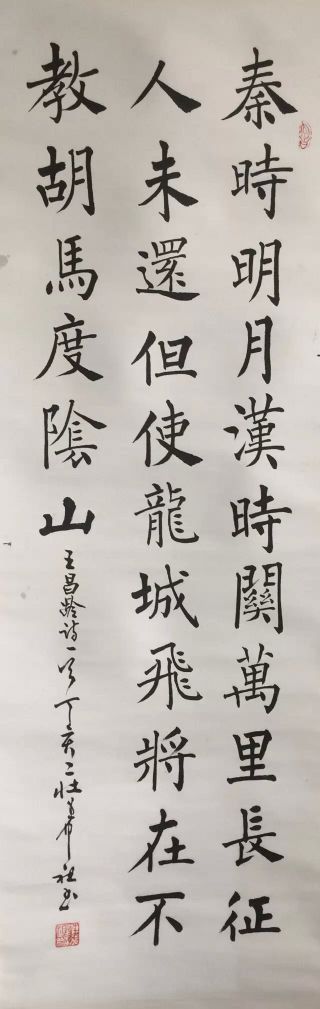 秦時明月漢時關萬里長征
人未還但使龍城飛將在不
教胡馬度陰山
王昌齡詩一首丁亥二壯